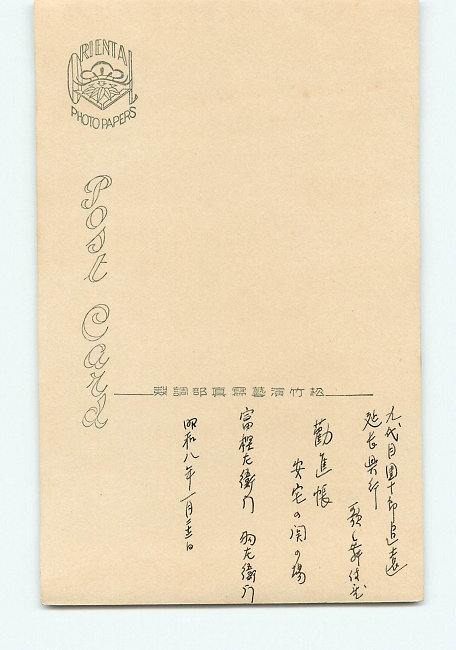 ORIENTAL
PHOTO PAPERS
Post Card
松竹演藝寫真部調製
九代目團十郎追遠
延長興行
歌舞伎座
勸進帳
安宅の関の場
富樫左衛門 羽左衛門
昭和八年一月 日